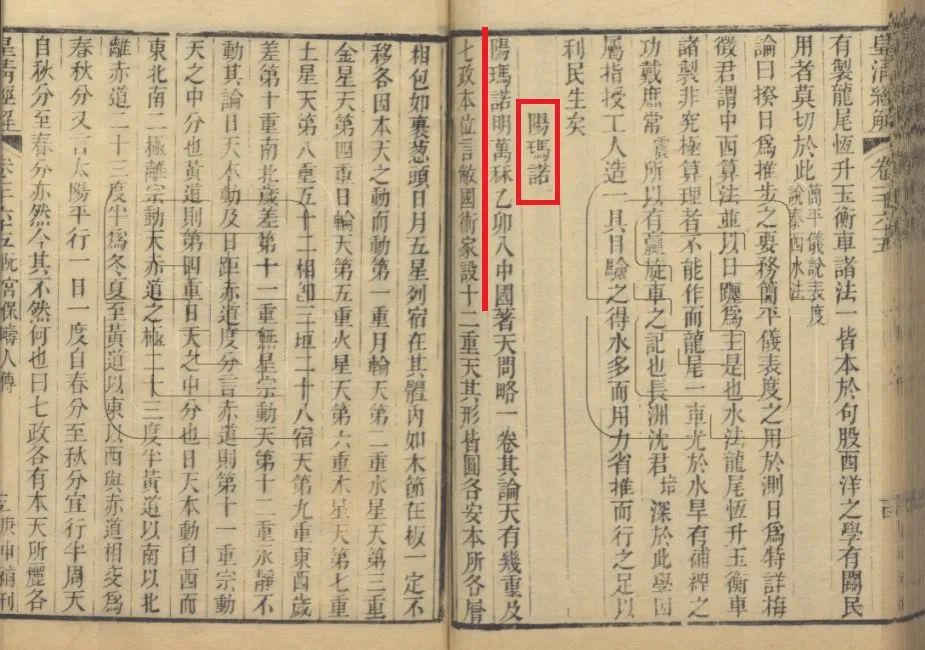 皇清經解 卷三六五
有製龍尾恆升玉衡車諸法一皆本於句股西洋之學有關民
用者莫切於此 簡平儀說表度
說泰西水法
論曰揆日爲推步之要務簡平儀表度之用於測日爲特詳梅
徵君謂中西算法並以日躔爲主是也水法龍尾恆升玉衡車
諸製非究極算理者不能作而龍尾一車尤於水旱有補裨之
功戴庶常震所以有蠃旋車之記也長洲沈君培深於此學因
屬指授工人造一具目驗之得水多而用力省推而行之足以
利民生矣
陽瑪諾
陽瑪諾明萬秝乙卯入中國著天問略一卷其論天有幾重及
七政本位言敝國術家設十二重天其形皆圓各安本所各層
相包如裹葱頭日月五星列宿在其體內如木節在板一定不
移各因本天之動而動第一重月輪天第二重水星天第三重
金星天第四重日輪天第五重火星天第六重木星天第七重
土星天第八重五十二相卽三垣二十八宿天第九重東西歲
差第十重南北歲差第十一重無星宗動天第十二重永靜不
動其論日天本動及日距赤道度分言赤道則第十一重宗動
天之中分也黃道則第四重日天之中分也日天本動自西而
東北南二極離宗動天赤道之極二十三度半黃道以南以北
離赤道二十三度半爲冬夏至黃道以東以西與赤道相交爲
春秋分又言太陽平行一日一度自春分至秋分宜行半周天
自秋分至春分亦然今其不然何也曰七政各有本天所麗各
皇清經解 卷三六五 阮宮保疇人傳 庚申補刊